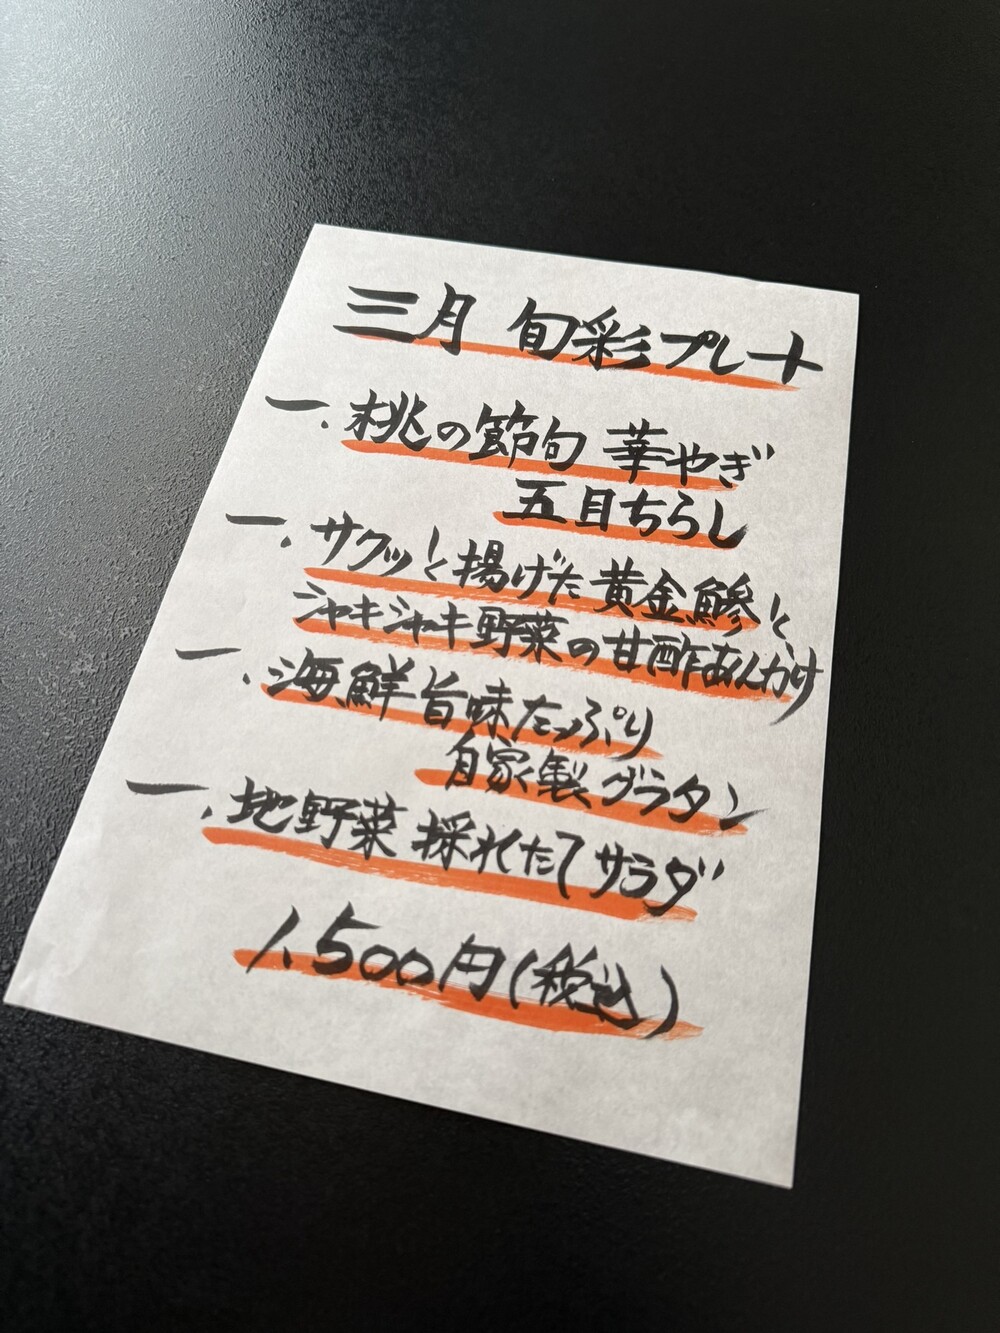 三月 旬彩プレート
一. 桃の節句 華やぎ
五目ちらし
一. サクッと揚げた黄金鯵と
シャキシャキ野菜の甘酢あんかけ
一. 海鮮旨味たっぷり
自家製グラタン
一. 地野菜 採れたてサラダ
1,500円(税込)